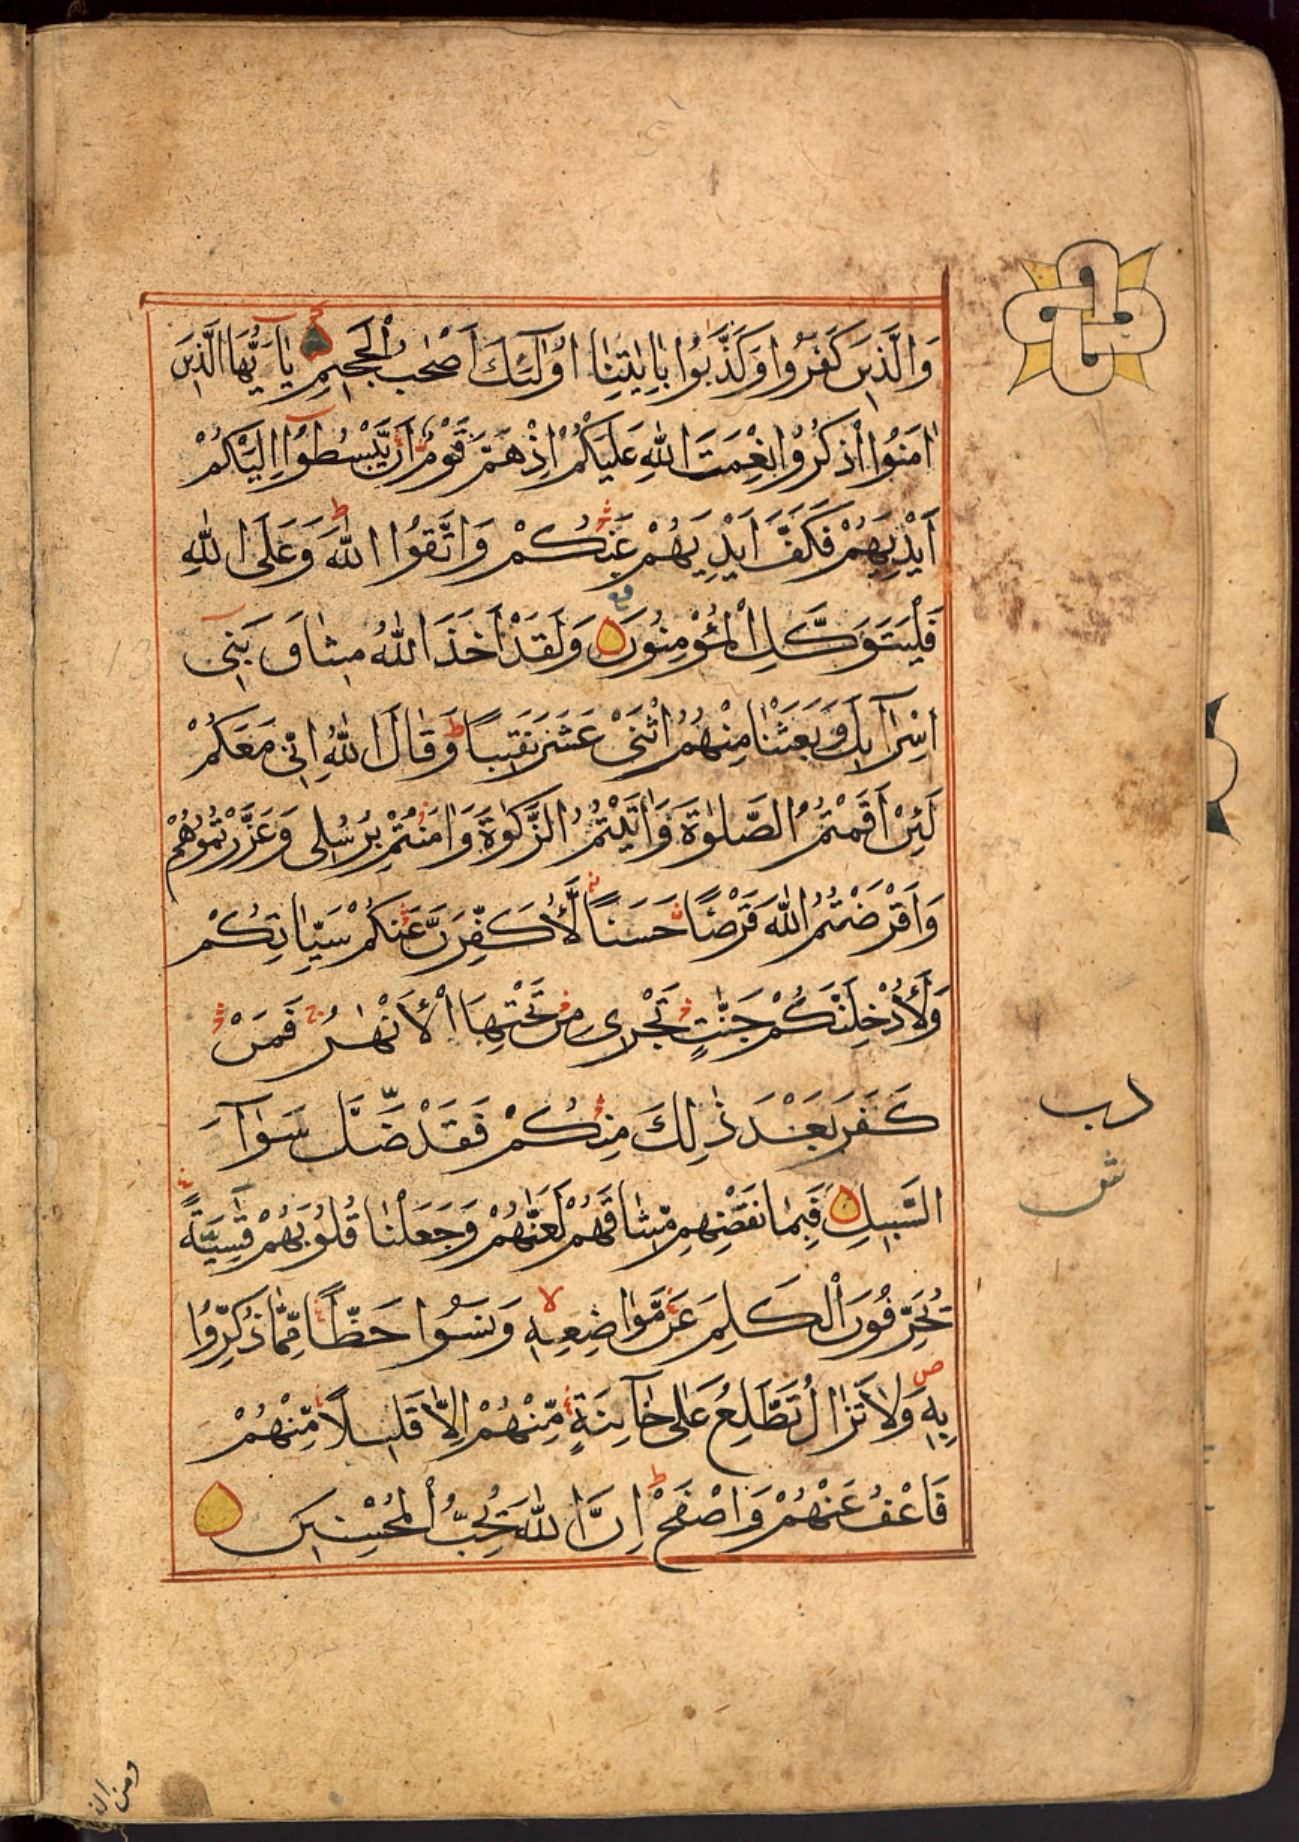 وَالَّذِينَ كَفَرُوا وَكَذَّبُوا بِاٰيٰتِنَا اُولٰٓئِكَ اَصْحٰبُ الْجَحِيمِ يٰٓاَيُّهَا الَّذِينَ
اٰمَنُوا اذْكُرُوا نِعْمَتَ اللّٰهِ عَلَيْكُمْ اِذْ هَمَّ قَوْمٌ اَنْ يَّبْسُطُوٓا اِلَيْكُمْ
اَيْدِيَهُمْ فَكَفَّ اَيْدِيَهُمْ عَنْكُمْ وَاتَّقُوا اللّٰهَ ط وَعَلَى اللّٰهِ
فَلْيَتَوَكَّلِ الْمُؤْمِنُونَ وَلَقَدْ اَخَذَ اللّٰهُ مِيثٰاقَ بَنِىٓ
اِسْرَآئِيلَ وَبَعَثْنَا مِنْهُمُ اثْنَىْ عَشَرَ نَقِيبًا ط وَقَالَ اللّٰهُ اِنِّى مَعَكُمْ
لَئِنْ اَقَمْتُمُ الصَّلٰوةَ وَاٰتَيْتُمُ الزَّكٰوةَ وَاٰمَنْتُمْ بِرُسُلِى وَعَزَّرْتُمُوهُمْ
وَاَقْرَضْتُمُ اللّٰهَ قَرْضًا حَسَنًا لَّأُكَفِّرَنَّ عَنْكُمْ سَيِّاٰتِكُمْ
وَلَأُدْخِلَنَّكُمْ جَنّٰتٍ تَجْرِى مِنْ تَحْتِهَا الْأَنْهٰرُ ج فَمَنْ
كَفَرَ بَعْدَ ذٰلِكَ مِنْكُمْ فَقَدْ ضَّلَّ سَوَآءَ
السَّبِيلِ فَبِمَا نَقْضِهِمْ مِّيثَاقَهُمْ لَعَنّٰهُمْ وَجَعَلْنَا قُلُوبَهُمْ قٰسِيَةً
يُحَرِّفُونَ الْكَلِمَ عَنْ مَّوَاضِعِهٖ لا وَنَسُوا حَظًّا مِّمَّا ذُكِّرُوا
بِهٖ ص وَلَا تَزَالُ تَطَّلِعُ عَلٰى خَآئِنَةٍ مِّنْهُمْ اِلَّا قَلِيلًا مِّنْهُمْ
فَاعْفُ عَنْهُمْ وَاصْفَحْ ط اِنَّ اللّٰهَ يُحِبُّ الْمُحْسِنِينَ